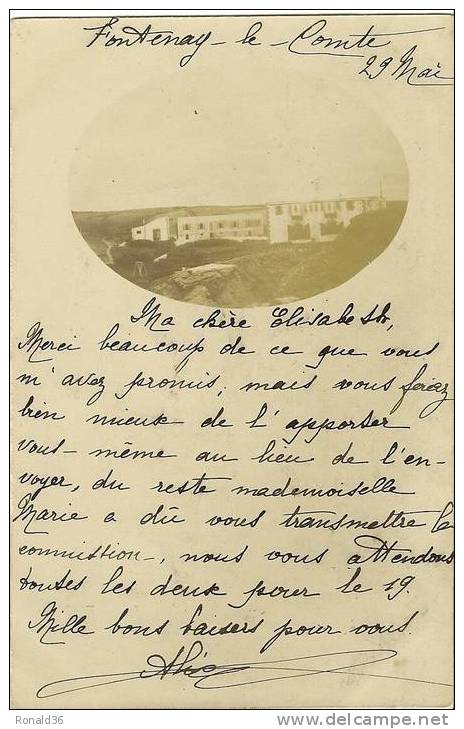 Fontenay-le-Comte
29 Mai
Ma chère Elisabeth,
Merci beaucoup de ce que vous
m'avez promis, mais vous feriez
bien mieux de l'apporter
vous-même au lieu de l'en-
voyer, du reste mademoiselle
Marie a dû vous transmettre la
commission, nous vous attendons
toutes les deux pour le 19.
Mille bons baisers pour vous.
Ronald36
http://www.delcampe.net